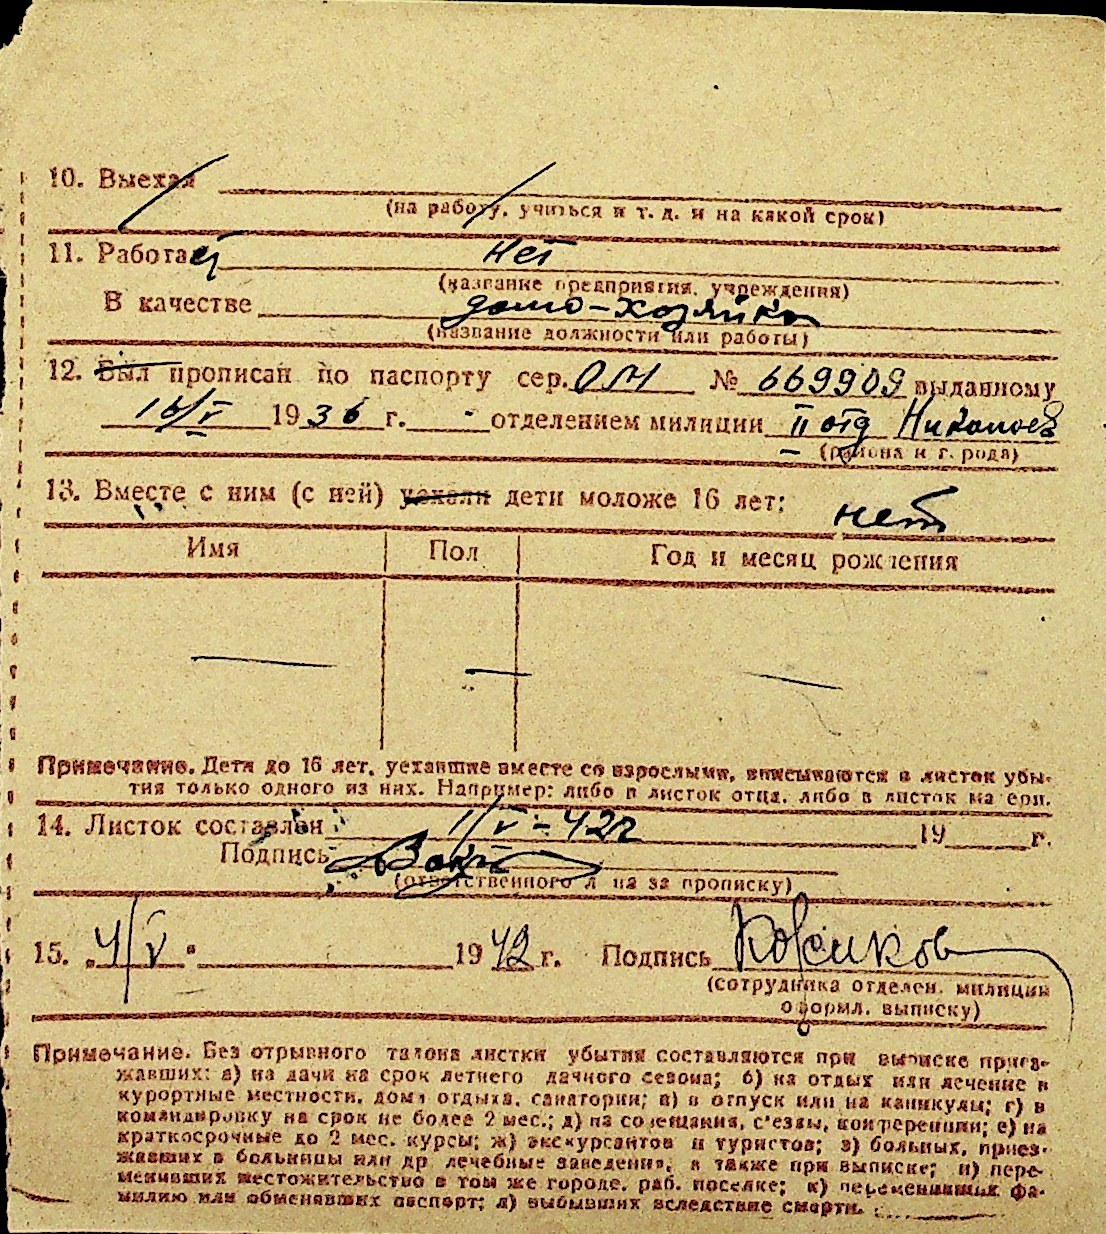 10. Выехал
(на работу, учиться и т. д. и на какой срок)
11. Работает Нет
(название предприятия, учреждения)
В качестве домо-хозяйка
(название должности или работы)
12. Был прописан по паспорту сер. ОМ № 669909 выданному
16/V 1936 г. - отделением милиции II отд Николаев
(района и города)
13. Вместе с ним (с ней) уехали дети моложе 16 лет: нет
Имя Пол Год и месяц рождения
Примечание. Дети до 16 лет, уехавшие вместе со взрослыми, вписываются в листок убы-
тия только одного из них. Например: либо в листок отца, либо в листок матери.
14. Листок составлен 1/V-42г 19 г.
Подпись
(ответственного лица за прописку)
15. 4/V 1942 г. Подпись Кожиков
(сотрудника отделен. милиции
оформл. выписку)
Примечание. Без отрывного талона листки убытия составляются при выписке приез-
жавших: а) на дачи на срок летнего дачного сезона; б) на отдых или лечение в
курортные местности, дома отдыха, санатории; в) в отпуск или на каникулы; г) в
командировку на срок не более 2 мес.; д) на совещания, с'езды, конференции; е) на
краткосрочные до 2 мес. курсы; ж) экскурсантов и туристов; з) больных, приез-
жавших в больницы или др лечебные заведения, а также при выписке; и) пере-
менивших местожительство в том же городе, раб. поселке; к) переменивших фа-
милию или обменявших паспорт; л) выбывших вследствие смерти.